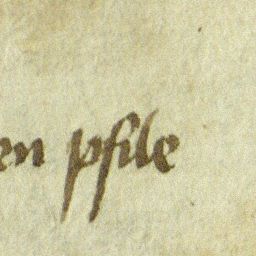 en pfile